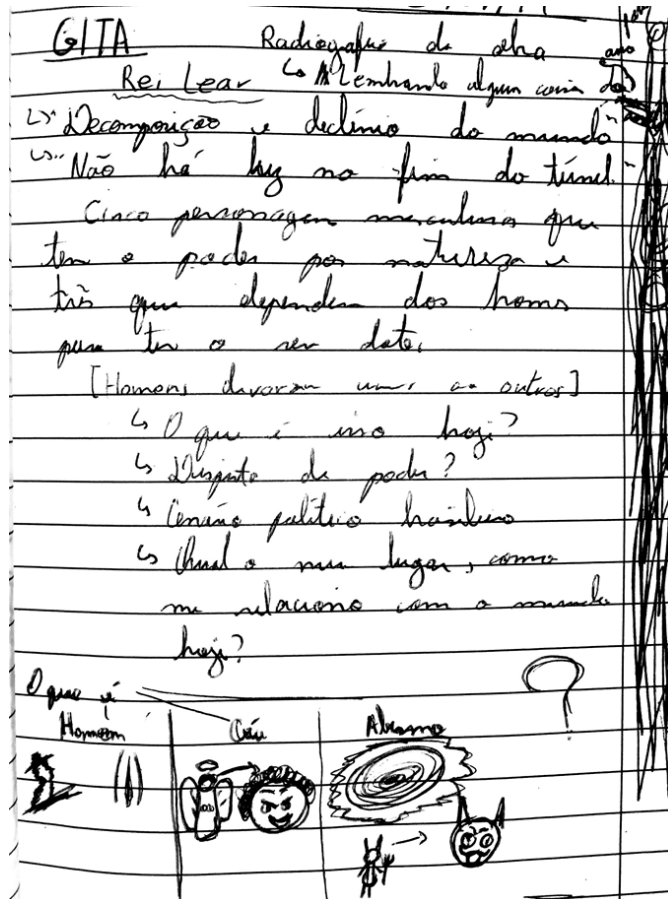 GITA Radiografia da obra
Rei Lear ↳ Lembrando alguma coisa do
↳" Decomposição e declínio do mundo"
↳" Não há luz no fim do túnel"
Cinco personagens masculinos que
tem o poder por natureza e
três que dependem dos homens
para ter o seu dote.
[Homens devoram uns aos outros]
↳ O que é isso hoje?
↳ Disputa de poder?
↳ Cenário político brasileiro
↳ Qual o meu lugar, como
me relaciono com o mundo
hoje?
O que é
Homem Céu Abismo
?